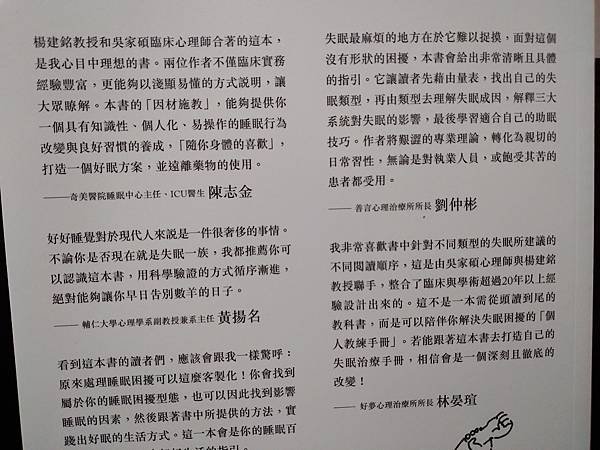 楊建銘教授和吳家碩臨床心理師合著的這本,
是我心目中理想的書。兩位作者不僅臨床實務
經驗豐富,更能夠以淺顯易懂的方式說明,讓
大眾瞭解。本書的「因材施教」,能夠提供你
一個具有知識性、個人化、易操作的睡眠行為
改變與良好習慣的養成,「隨你身體的喜歡」,
打造一個好眠方案,並遠離藥物的使用。
——奇美醫院睡眠中心主任、ICU醫生 陳志金
好好睡覺對於現代人來說是一件很奢侈的事情。
不論你是否現在就是失眠一族,我都推薦你可
以認識這本書,用科學驗證的方式循序漸進,
絕對能夠讓你早日告別數羊的日子。
—— 輔仁大學心理學系副教授兼系主任 黃揚名
看到這本書的讀者們,應該會跟我一樣驚呼:
原來處理睡眠困擾可以這麼客製化!你會找到
屬於你的睡眠困擾型態,也可以因此找到影響
睡眠的因素,然後跟著書中所提供的方法,實
踐出好眠的生活方式。這一本會是你的睡眠百
失眠最麻煩的地方在於它難以捉摸,面對這個
沒有形狀的困擾,本書會給出非常清晰且具體
的指引。它讓讀者先藉由量表,找出自己的失
眠類型,再由類型去理解失眠成因,解釋三大
系統對失眠的影響,最後學習適合自己的助眠
技巧。作者將艱澀的專業理論,轉化為親切的
日常習性,無論是對執業人員,或飽受其苦的
患者都受用。
—— 善言心理治療所所長 劉仲彬
我非常喜歡書中針對不同類型的失眠所建議的
不同閱讀順序,這是由吳家碩心理師與楊建銘
教授聯手,整合了臨床與學術超過20年以上經
驗設計出來的。這不是一本需從頭讀到尾的
教科書,而是可以陪伴你解決失眠困擾的「個
人教練手冊」。若能跟著這本書去打造自己的
失眠治療手冊,相信會是一個深刻且徹底的
改變!
—— 好夢心理治療所所長 林晏瑄